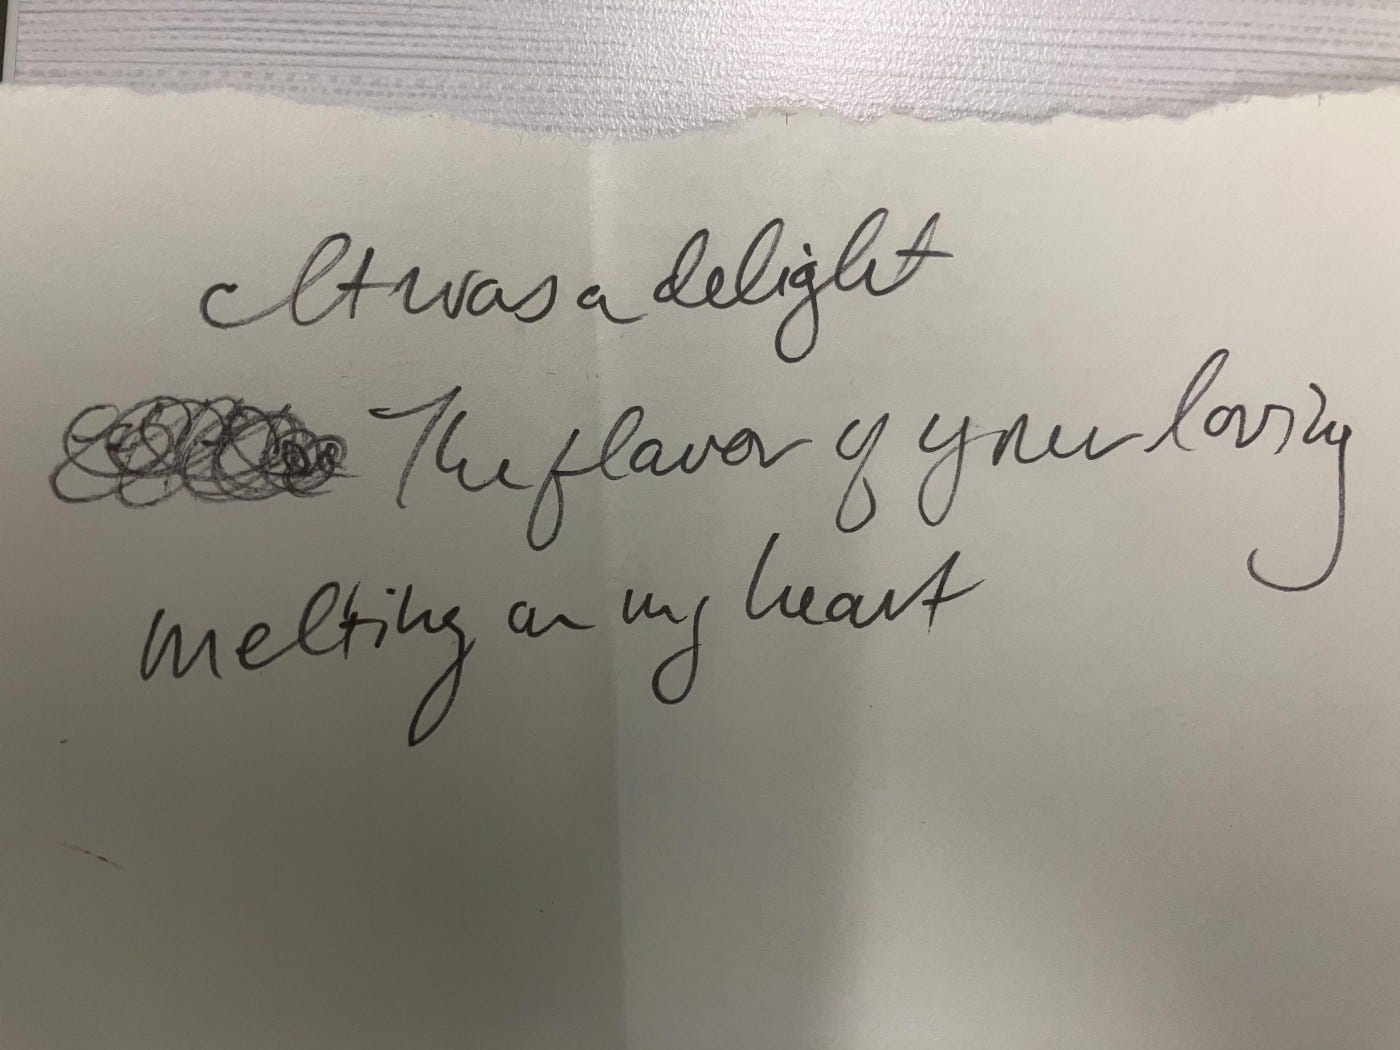 It was a delight
The flavor of your loving
melting on my heart